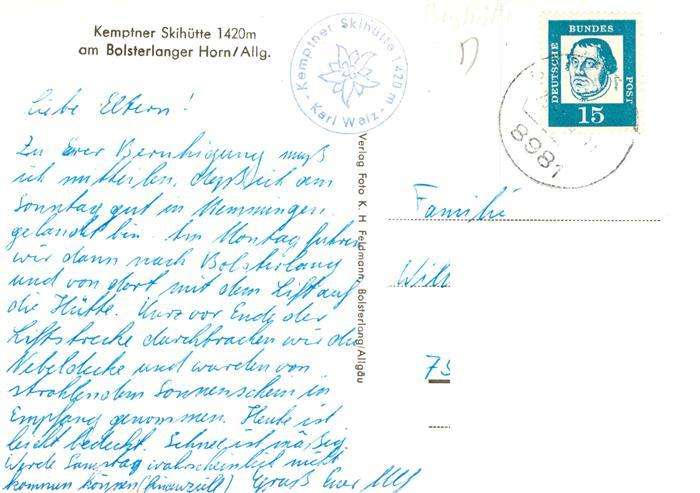 Kemptner Skihütte 1420m
am Bolsterlanger Horn/Allg.
Kemptner Skihütte 1420 m
- Karl Walz -
DEUTSCHE BUNDES POST
15
8981
Liebe Eltern!
Zu Eurer Beruhigung muß
ich mitteilen, daß ich am
Sonntag gut in Memmingen
gelandet bin. Am Montag fuhren
wir dann nach Bolsterlang
und von dort mit dem Lift auf
die Hütte. Kurz vor Ende der
Liftstrecke durchbrachen wir die
Nebeldecke und wurden von
strahlendem Sonnenschein in
Empfang genommen. Heute ist
leicht bedeckt. Schnee ist mäßig.
Werde Samstag wahrscheinlich nicht
kommen können (finanziell) Gruß Euer
Verlag Foto K. H. Feldmann, Bolsterlang/Allgäu
Familie